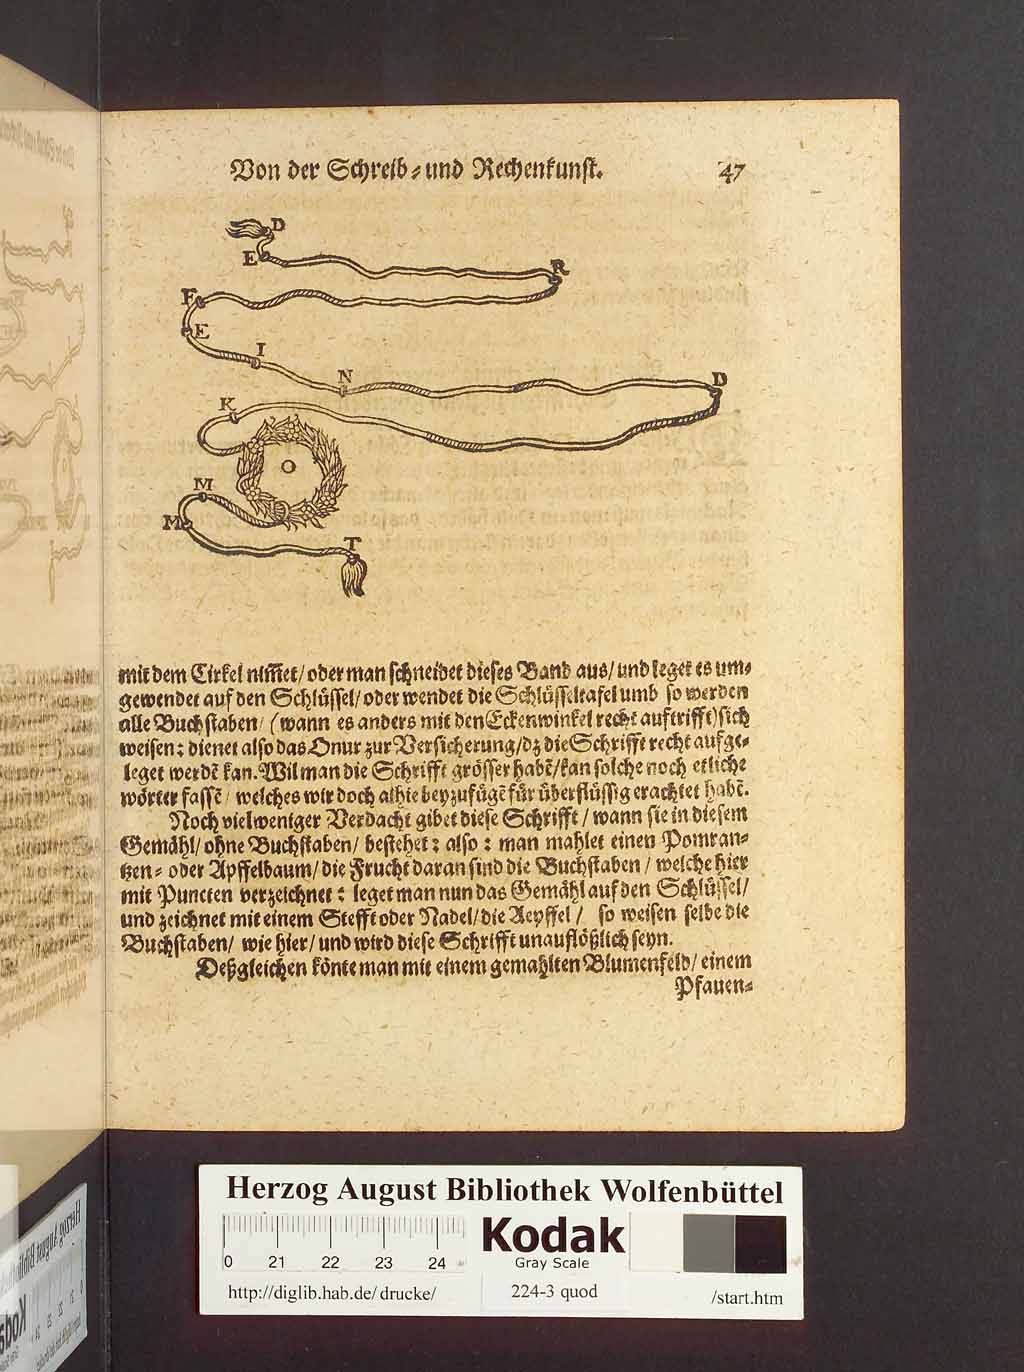 Von der Schreib- und Rechenkunst. 47
D
E
R
F
E
I
N
D
K
O
M
M
T
mit dem Cirkel nim̃et/ oder man schneidet dieses Band aus/ und leget es um-
gewendet auf den Schlüssel/ oder wendet die Schlüsseltafel umb so werden
alle Buchstaben/ (wann es anders mit den Eckenwinkel recht auftrifft) sich
weisen: dienet also das Onur zur Versicherung/ dz die Schrifft recht aufge-
leget werdē kan. Wil man die Schrifft grösser habē/ kan solche noch etliche
wörter fassē/ welches wir doch alhie beyzufügē für überflüssig erachtet habē.
Noch vielweniger Verdacht gibet diese Schrifft/ wann sie in diesem
Gemähl/ ohne Buchstaben/ bestehet: also: man mahlet einen Pomran-
tzen- oder Apffelbaum/ die Frucht daran sind die Buchstaben/ welche hier
mit Puncten verzeichnet: leget man nun das Gemähl auf den Schlüssel/
und zeichnet mit einem Stefft oder Nadel/ die Aepffel/ so weisen selbe die
Buchstaben/ wie hier/ und wird diese Schrifft unauflößlich seyn.
Deßgleichen könte man mit einem gemahlten Blumenfeld/ einem
Pfauen-
Herzog August Bibliothek Wolfenbüttel
0 21 22 23 24
Kodak
Gray Scale
http://diglib.hab.de/drucke/ 224-3 quod /start.htm